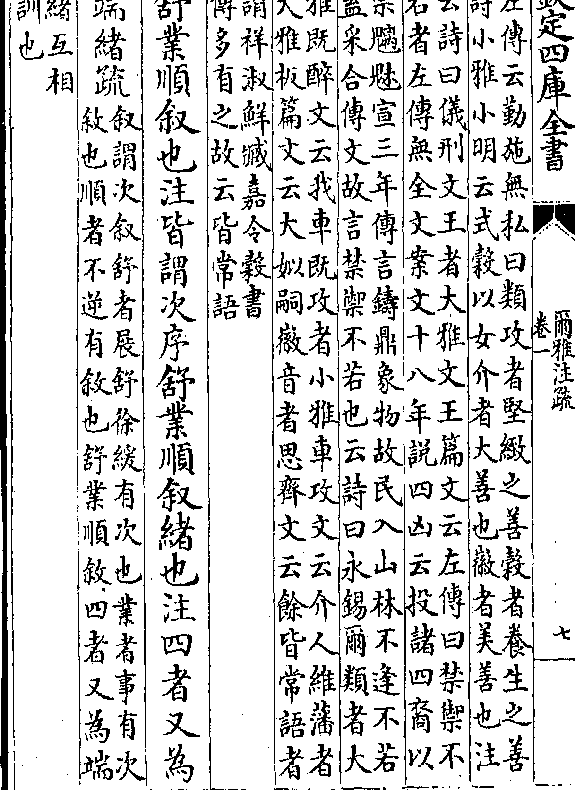 欽定四庫全書
爾雅注疏
卷一
七
左傳云勤施無私曰類攻者堅緻之善穀者養生之善
詩小雅小明云式穀以女介者大善也徽者美善也注
云詩曰儀刑文王者大雅文王篇文云左傳曰禁禦不
若者左傳無全文案文十八年説四凶云投諸四裔以
禦魑魅宣三年傳言鑄鼎象物故民入山林不逢不若
蓋采合傳文故言禁禦不若也云詩曰永錫爾類者大
雅既醉文云我車既攻者小雅車攻文云介人維藩者
大雅板篇文云大姒嗣徽音者思齊文云餘皆常語者
謂祥淑鮮臧嘉令穀書
傳多有之故云皆常語
舒業順叙也注皆謂次序舒業順叙緒也注四者又為
端緒疏
叙謂次叙舒者展舒徐緩有次也業者事有次
敘也順者不逆有敘也舒業順敘四者又為端
緒互相
訓也